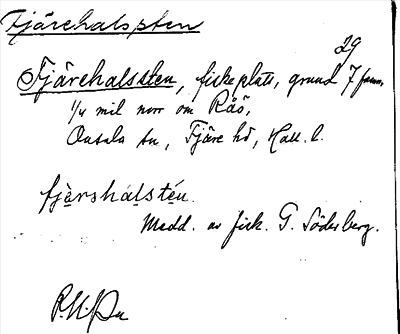 Fjärehalssten
29
Fjärehalssten, fiskeplats, grund 7 famn,
1/4 mil norr om Råö,
Onsala sn, Fjäre hd, Hall. l.
fjä̀rshálstén.
Medd. av fisk. G. Söderberg.